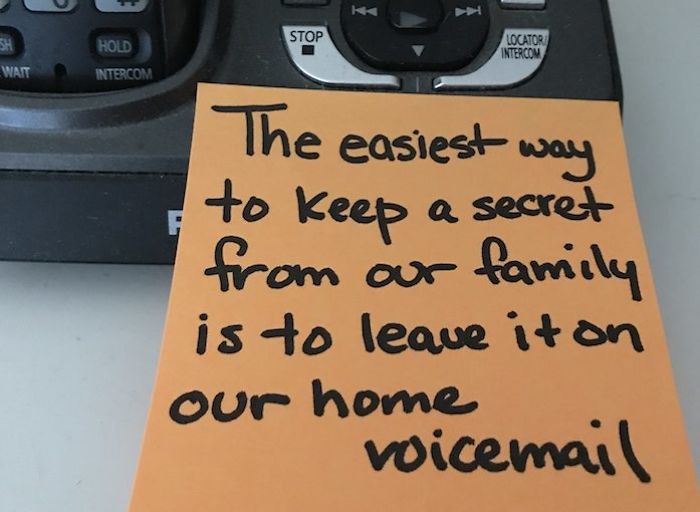 HOLD
WAIT
INTERCOM
STOP
LOCATOR/
INTERCOM
The easiest way
to keep a secret
from our family
is to leave it on
our home
voicemail